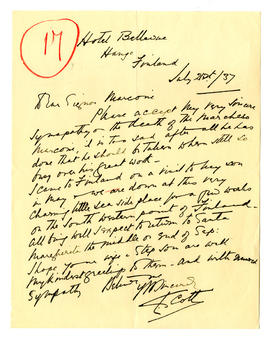 17
Hotel Bellevue
Hango
Finland
July 21st/37
Dear Signor Marconi
Please accept my very sincere
sympathy on the death of the Marchese
Marconi, it is too sad after all he has
done that he should be taken when still so
busy over his great work —
I came to Finland on a visit to my son
in May — we are down at this very
charming little sea side place for a few weeks
on the South Western point of Finland —
all being well I expect to return to Santa
Margherita the middle or end of Sep:
I hope your wife & Step son are well
My kindest greetings to them — and with
Sympathy Believe me
Yrs sincerely
Scott